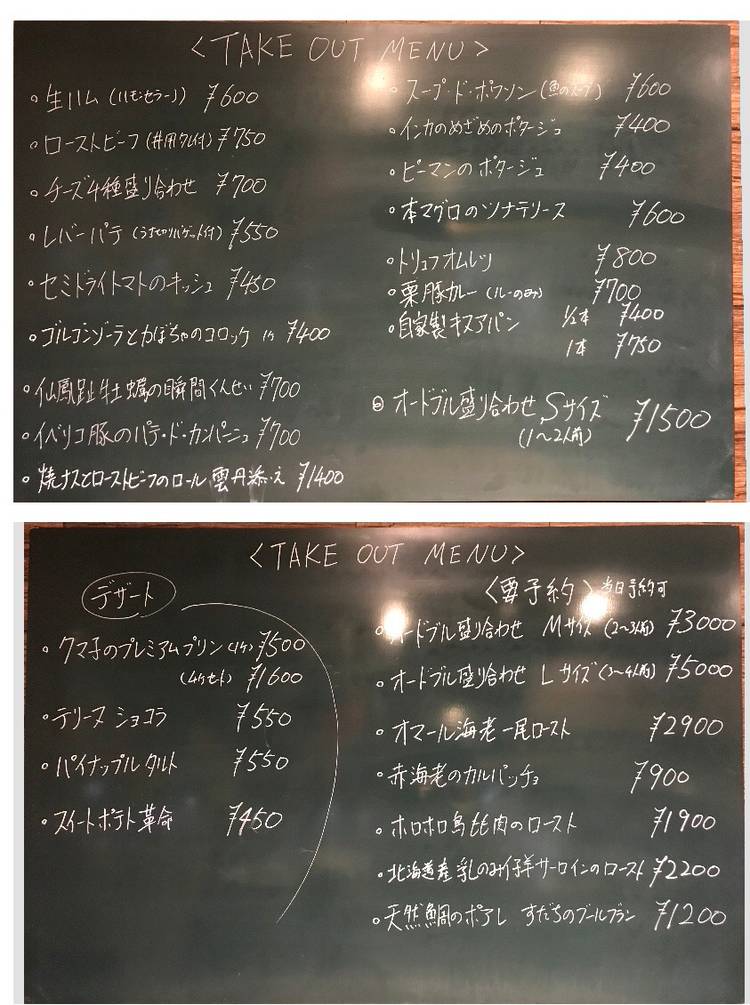 <TAKE OUT MENU>
○生ハム(ハモンセラーノ) ¥600
○ローストビーフ(丼用タレ付) ¥750
○チーズ4種盛り合わせ ¥700
○レバーパテ(うすぎりバゲット付) ¥550
○セミドライトマトのキッシュ ¥450
○ゴルゴンゾーラとかぼちゃのコロッケ 1ケ ¥400
○仙鳳趾牡蠣の瞬間くんせい ¥700
○イベリコ豚のパテ・ド・カンパーニュ ¥700
○焼ナスとローストビーフのロール 雲丹添え ¥1400
○スープ・ド・ポワソン(魚のスープ) ¥600
○インカのめざめのポタージュ ¥400
○ピーマンのポタージュ ¥400
○本マグロのツナテリーヌ ¥600
○トリュフオムレツ ¥800
○栗豚カレー(ルーのみ) ¥700
○自家製キヌアパン ½本 ¥400
1本 ¥750
◎オードブル盛り合わせ Sサイズ ¥1500
(1〜2人前)
<TAKE OUT MENU>
デザート
○クマ子のプレミアムプリン(1ケ) ¥500
(4ケセット) ¥1600
○テリーヌ ショコラ ¥550
○パイナップルタルト ¥550
○スイートポテト革命 ¥450
<要予約> 当日予約可
○オードブル盛り合わせ Mサイズ(2〜3人前) ¥3000
○オードブル盛り合わせ Lサイズ(3〜4人前) ¥5000
○オマール海老一尾ロースト ¥2900
○赤海老のカルパッチョ ¥900
○ホロホロ鳥もも肉のロースト ¥1900
○北海道産乳のみ仔羊サーロインのロースト ¥2200
○天然鯛のポアレ すだちのブールブラン ¥1200